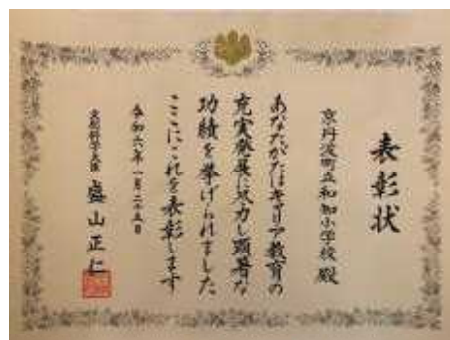 表彰状
京丹波町立和知小学校 殿
あなたがたはキャリア教育の
充実発展に尽力し顕著な
功績を挙げられました
ここにこれを表彰します
令和六年一月二十五日
文部科学大臣 盛山正仁